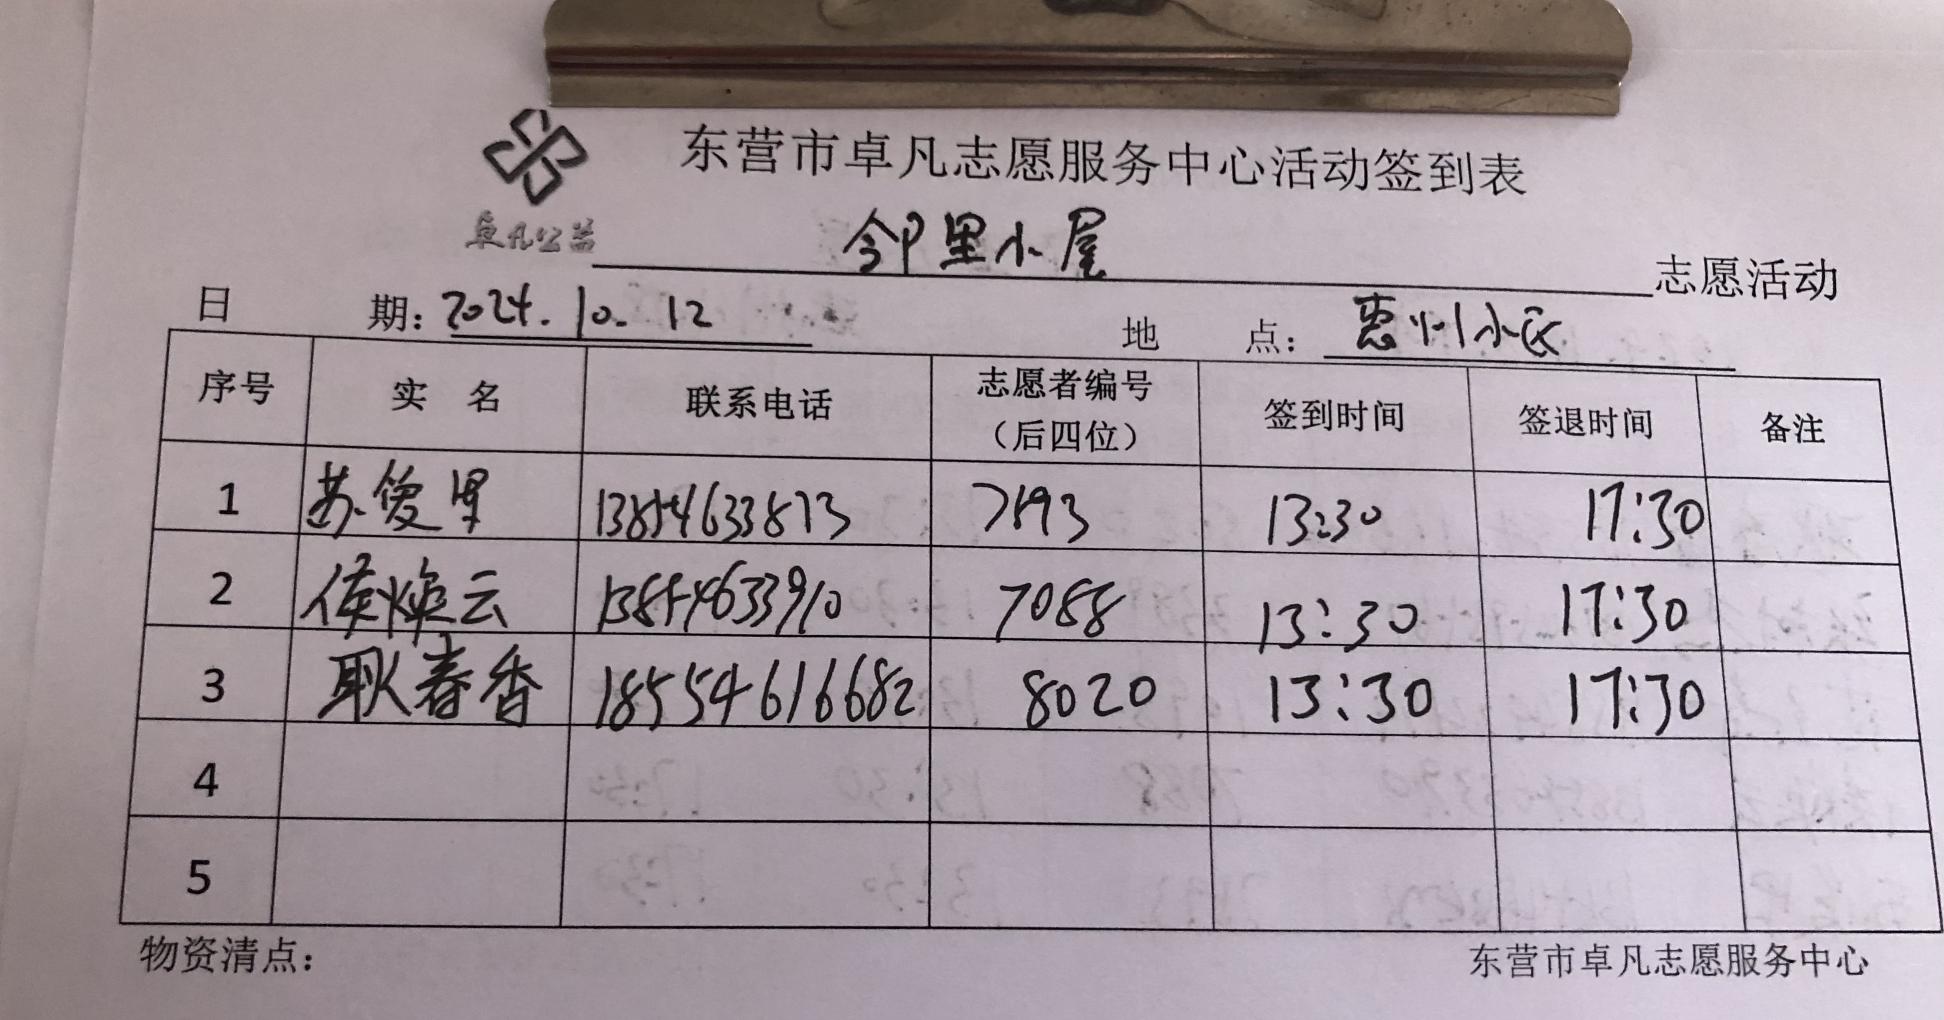 东营市卓凡志愿服务中心活动签到表
卓凡公益
邻里小屋 志愿活动
日 期：2024.10.12 地 点：惠州小区
序号 实 名 联系电话 志愿者编号（后四位） 签到时间 签退时间 备注
1 苏俊 13854633813 7193 13:30 17:30
2 侯焕云 13854633910 7088 13:30 17:30
3 耿春香 18554616682 8020 13:30 17:30
4
5
物资清点： 东营市卓凡志愿服务中心